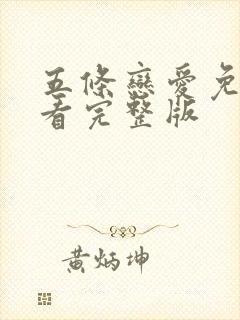 五條戀愛免
看完整版
黃炳坤